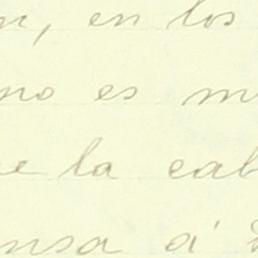 n, en los
no es m
e la cab
ensa á